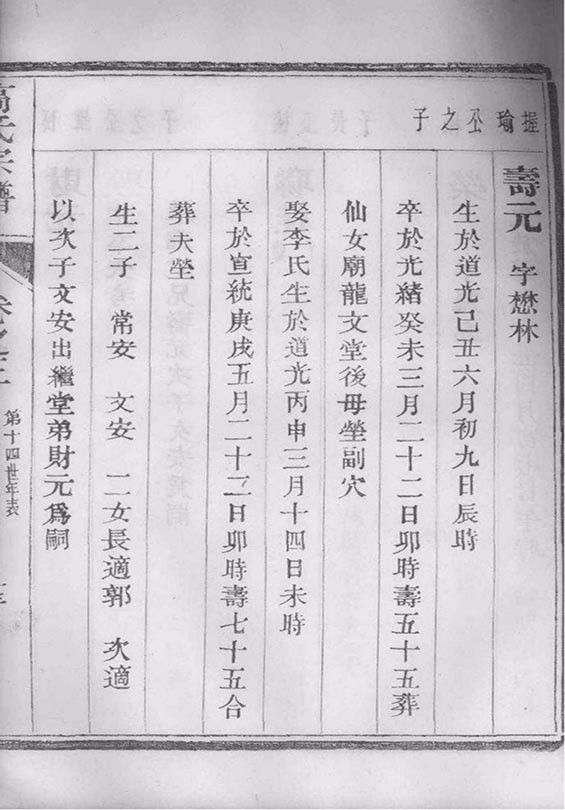 握瑜公之子
壽元 字懋林
生於道光己丑六月初九日辰時
卒於光緒癸未三月二十二日卯時壽五十五葬
仙女廟龍文堂後毋塋副穴
娶李氏生於道光丙申三月十四日未時
卒於宣統庚戌五月二十二日卯時壽七十五合
葬夫塋
生二子 常安 文安 二女長適郭 次適
以次子文安出繼堂弟財元爲嗣
高氏宗譜
第十四世年表